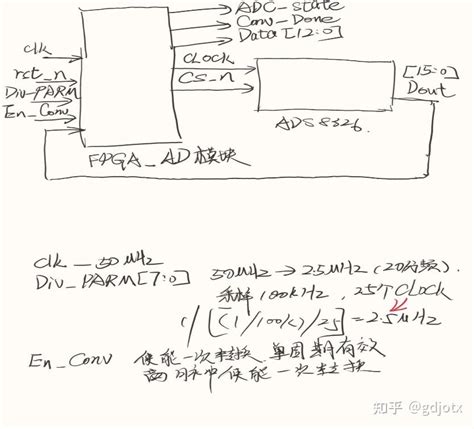 ADC_state
Conv_Done
Data[12:0]
clk
CLOCK
rst_n
CS_n
[15:0]
Div_PARM
Dout
En_Conv
ADS8326
FPGA_AD模块
clk — 50MHz
Div_PARM[7:0] 50MHz → 2.5MHz (20分频).
采样100kHz, 25个CLOCK
1/[(1/100k)/25] = 2.5MHz
En_Conv 使能一次转换、单周期有效
高脉冲使能一次转换
知乎 @gdjotx